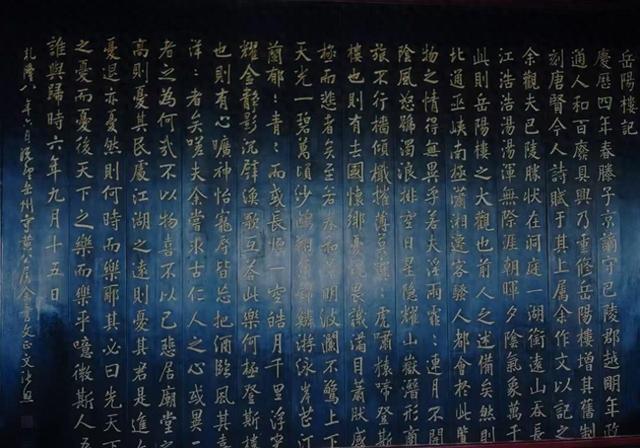 岳陽樓記
慶歷四年春滕子京謫守巴陵郡越明年政
通人和百廢具興乃重修岳陽樓增其舊制
刻唐賢今人詩賦于其上属余作文以記之
余觀夫巴陵勝狀在洞庭一湖銜遠山吞長
江浩浩湯湯渾無際涯朝暉夕陰氣象萬千
此則岳陽樓之大觀也前人之述備矣然則
北通巫峽南極瀟湘遷客騷人都會於此覽
物之情得無異乎若夫淫雨霏:連月不開
陰風怒號濁浪排空日星隱耀山嶽潛形商
旅不行檣傾檝摧薄暮冥:虎嘯猿啼登斯
樓也則有去國懷鄉憂讒畏譏滿目蕭然感
極而悲者矣至若春和景明波瀾不驚上下
天光一碧萬頃沙鷗翔集錦鱗游泳岸芷汀
蘭郁:青:而或長煙一空皓月千里浮光
耀金靜影沉璧漁歌互答此樂何極登斯樓
也則有心曠神怡寵辱皆忘把酒臨風其喜
洋:者矣嗟夫余嘗求古仁人之心或異二
者之為何哉不以物喜不以己悲居廟堂之
高則憂其民處江湖之遠則憂其君是進亦
憂退亦憂然則何時而樂耶其必曰先天下
之憂而憂後天下之樂而樂乎噫微斯人吾
誰與歸時六年九月十五日
乾隆八年